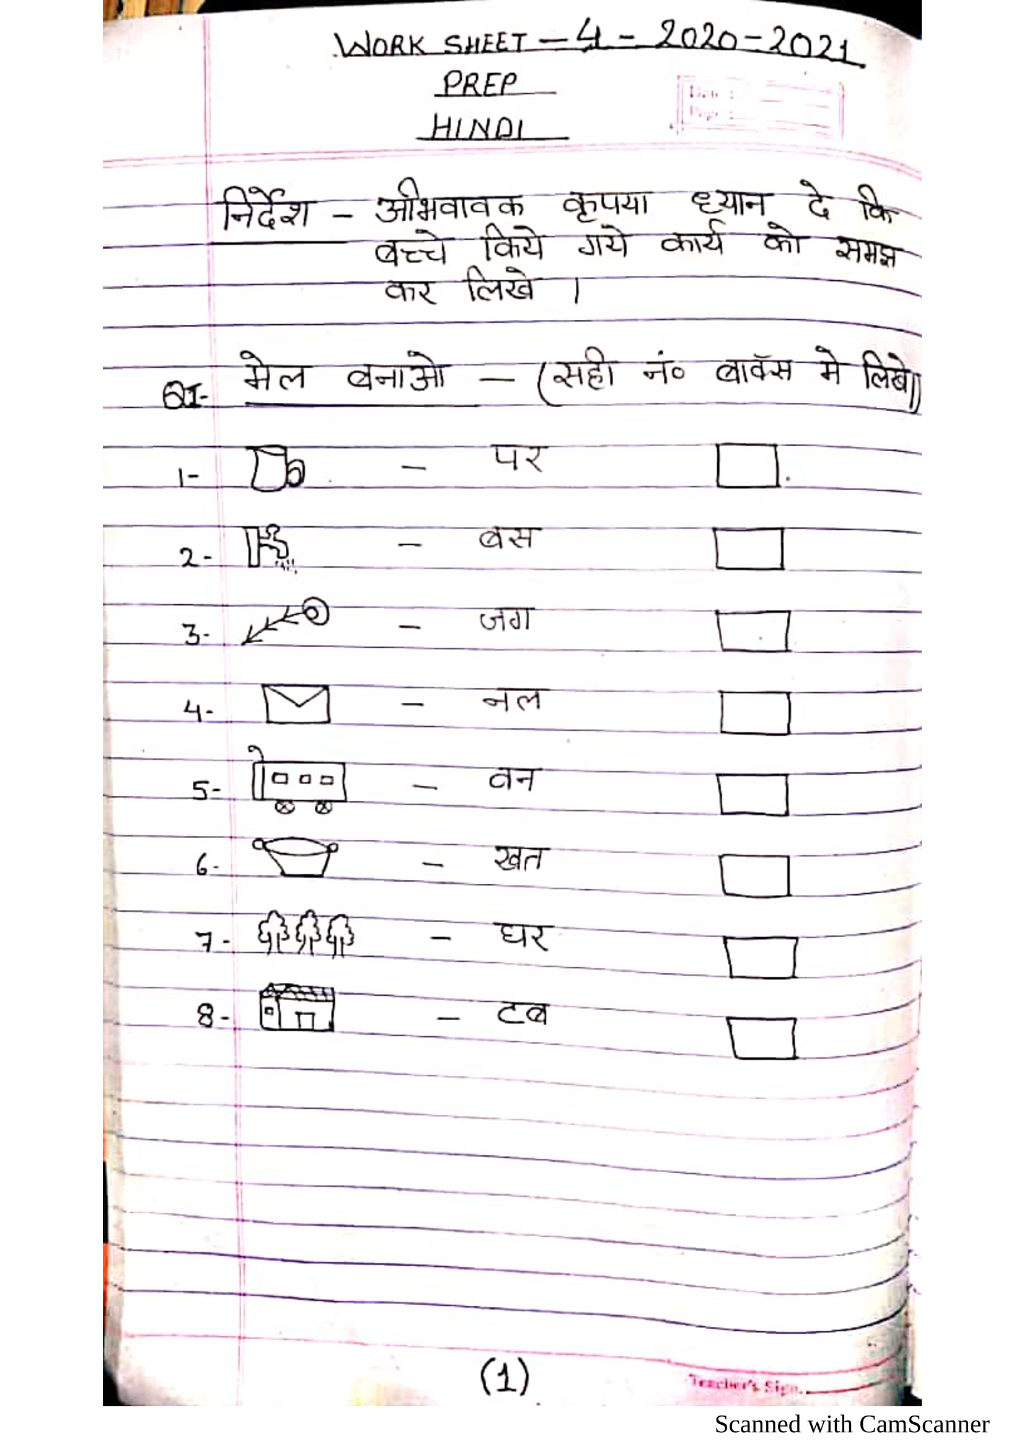 WORK SHEET - 4 - 2020-2021
PREP
HINDI
Date :
Page :
निर्देश - अभिवावक कृपया ध्यान दे कि
बच्चे किये गये कार्य को समझ
कर लिखे ।
Q1- मेल बनाओ - (सही नं० बाक्स मे लिखे)
1- - पर
2- - बस
3- - जग
4- - नल
5- - वन
6- - खत
7- - घर
8- - टब
(1)
Teacher's Sign.
Scanned with CamScanner